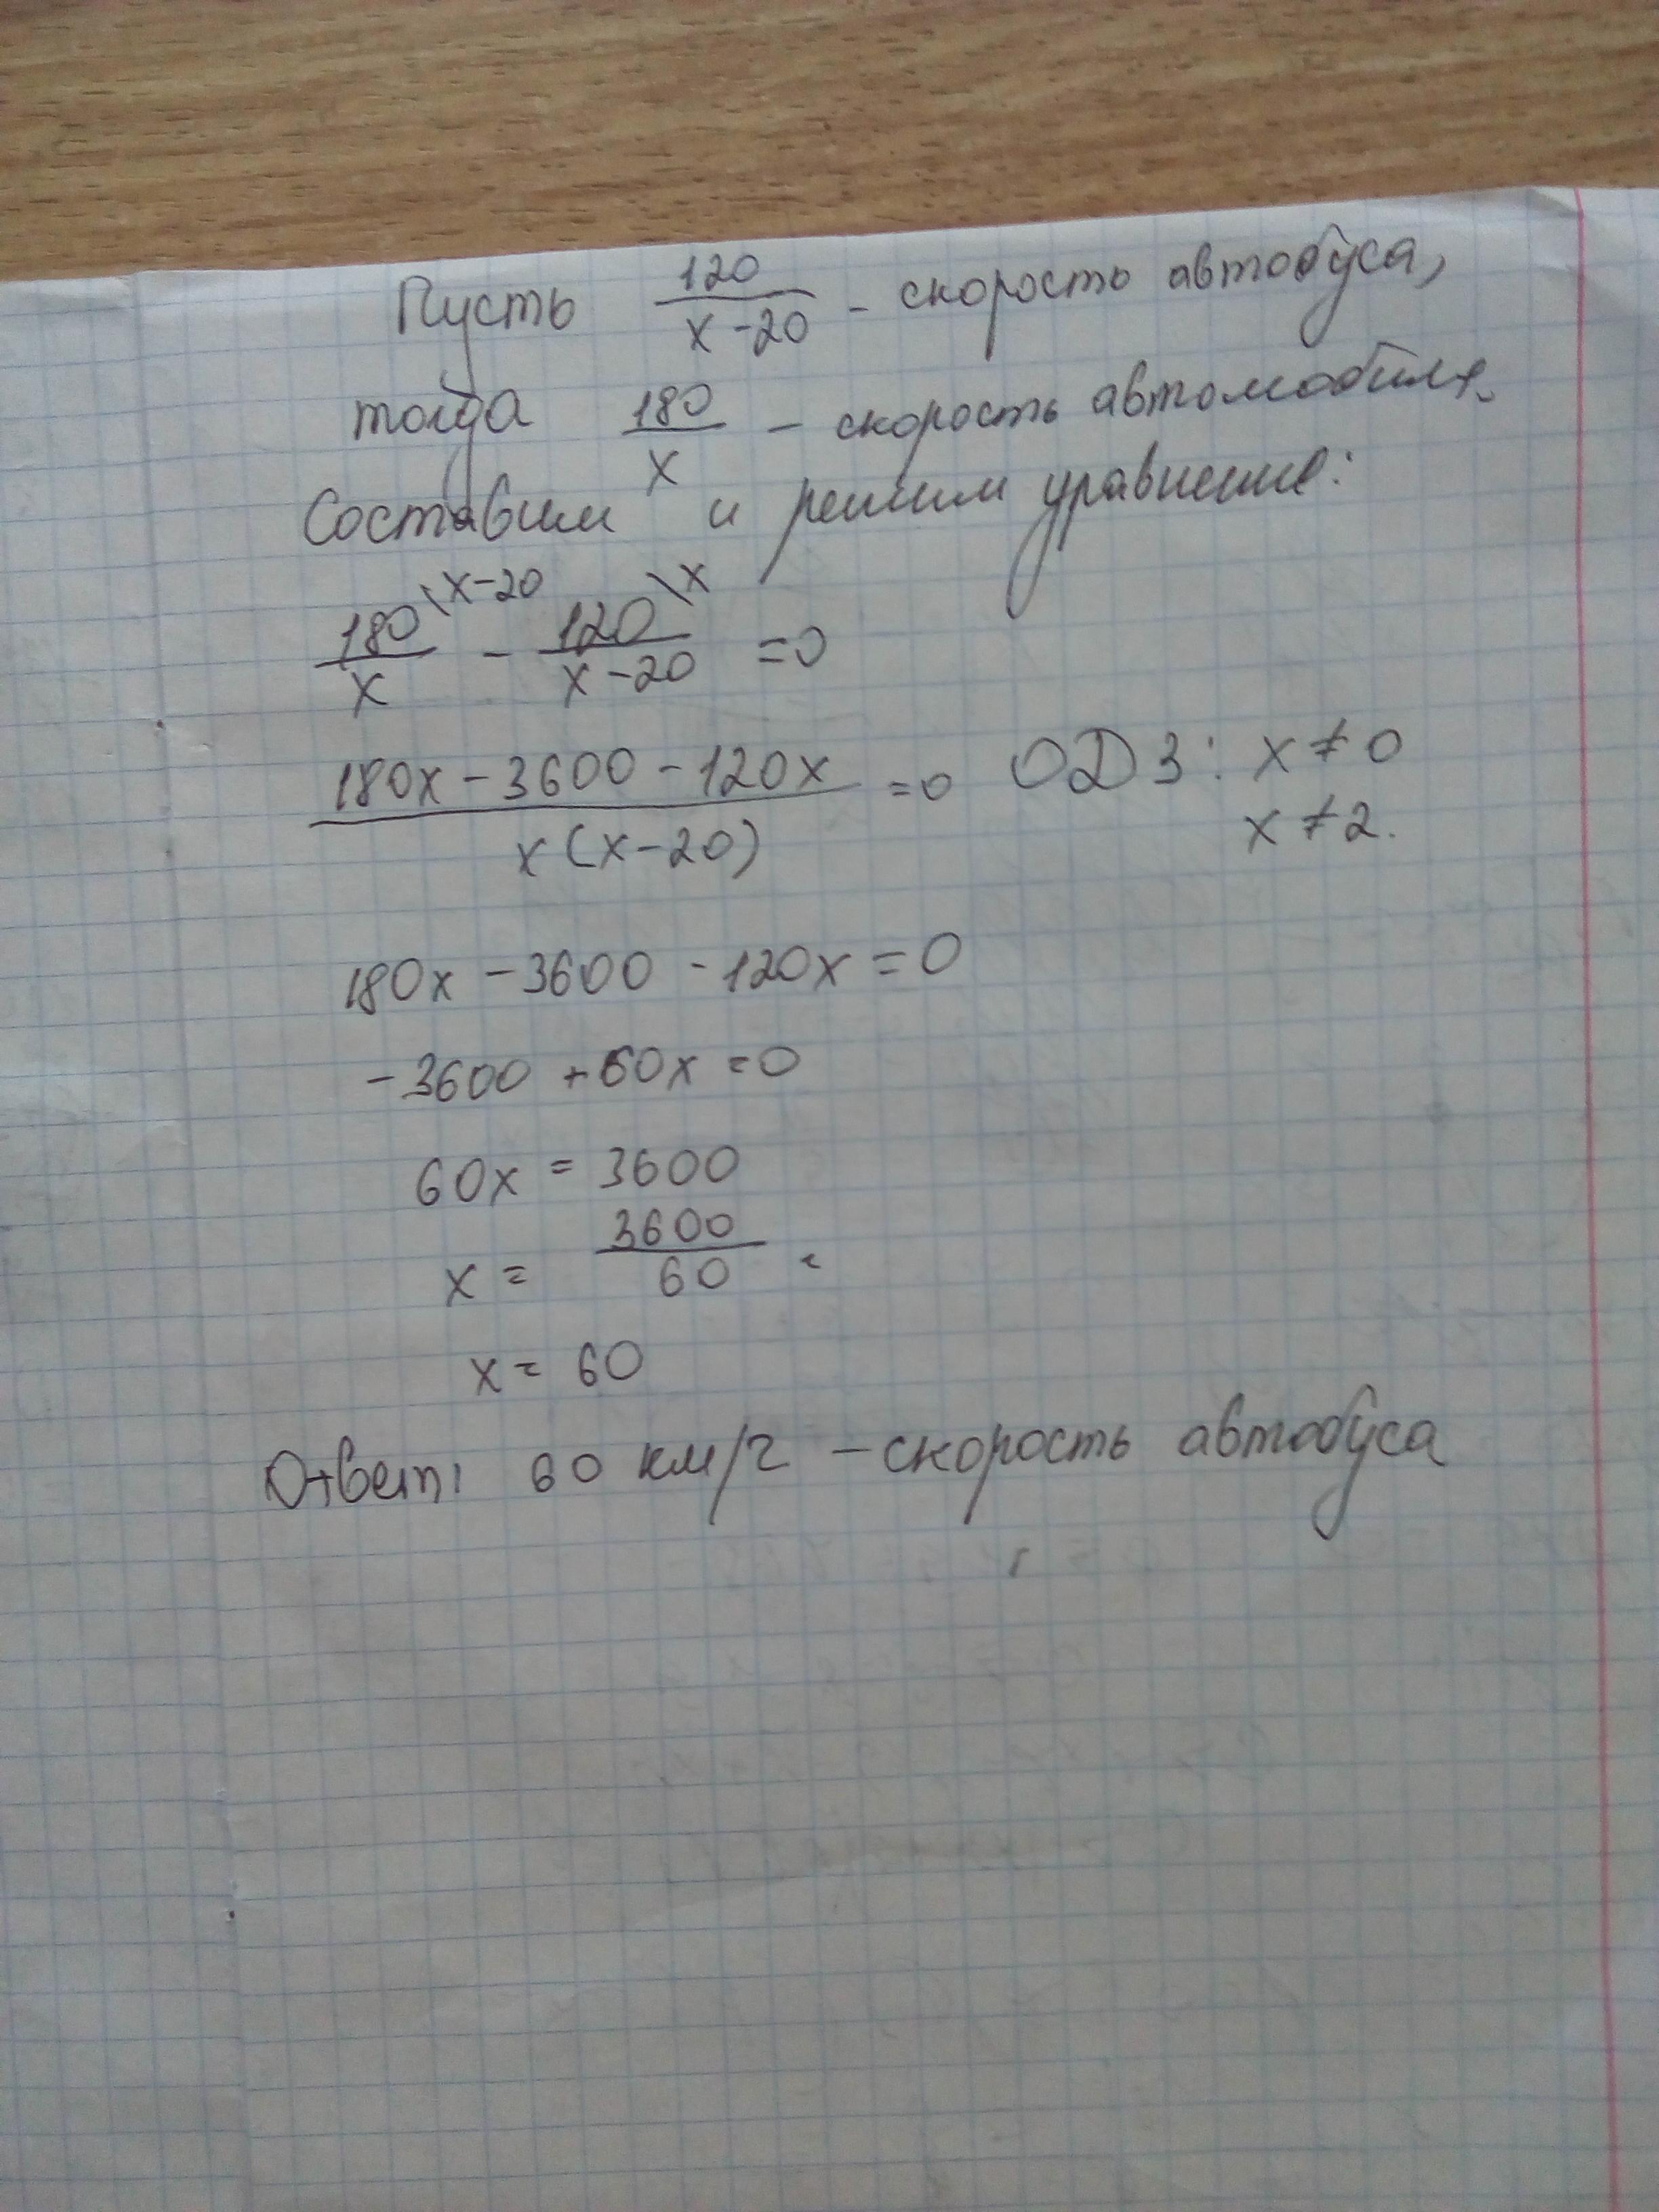 Пусть 120/(x-20) - скорость автобуса,
тогда 180/x - скорость автомобиля.
Составим и решим уравнение:
180/x \x-20 - 120/(x-20) \x =0
(180x-3600-120x)/(x(x-20)) =0 ОДЗ: x≠0
x≠2.
180x-3600-120x=0
-3600+60x=0
60x=3600
x= 3600/60 =
x=60
Ответ: 60 км/ч - скорость автобуса